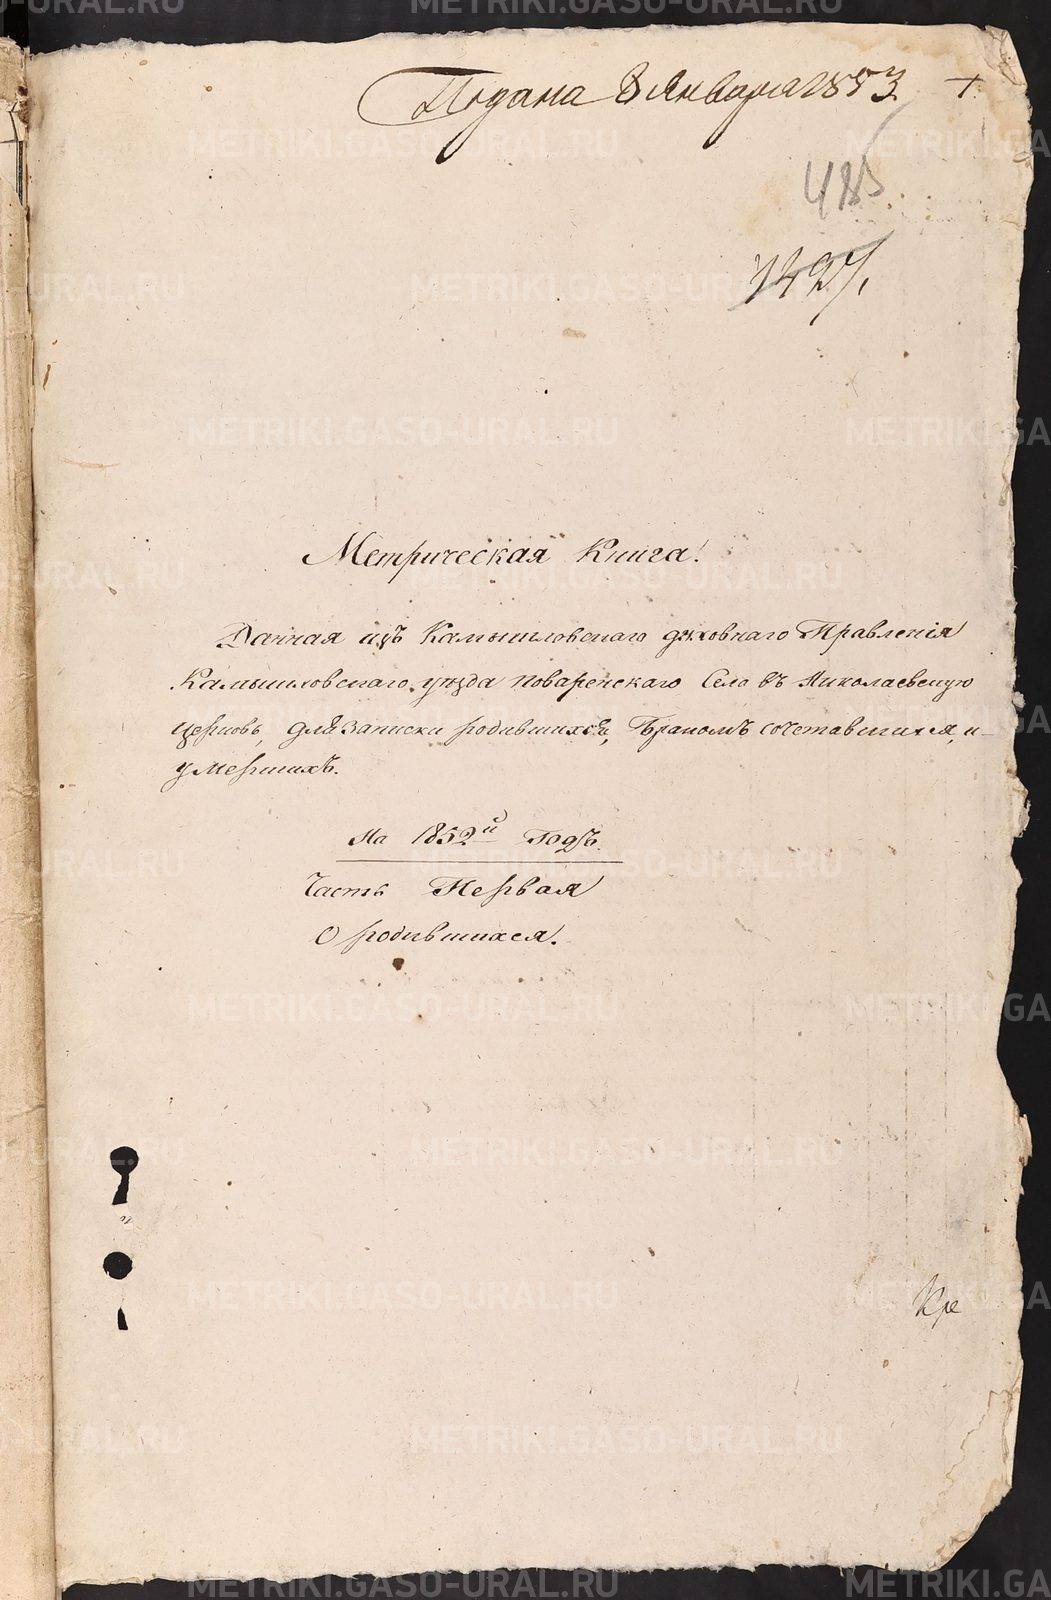 Подана 8 Января 1853
485
1427.
Метрическая Книга!
Данная изъ Камышловскаго духовнаго Правленія
Камышловскаго уѣзда поваренскаго Села въ Николаевскую
церковь, для записки родившихся, бракомъ сочетавшихся, и
умершихъ.
На 1852й Годъ.
Часть Первая
О родившихся.
Кре
METRIKI.GASO-URAL.RU